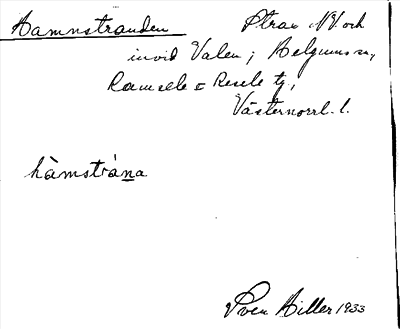 Hamnstranden
Stran NV och
invid Valen; Helgums sn,
Ramsele o Resele tg,
Västernorrl. l.
hàmstràna
Sven Hiller 1933